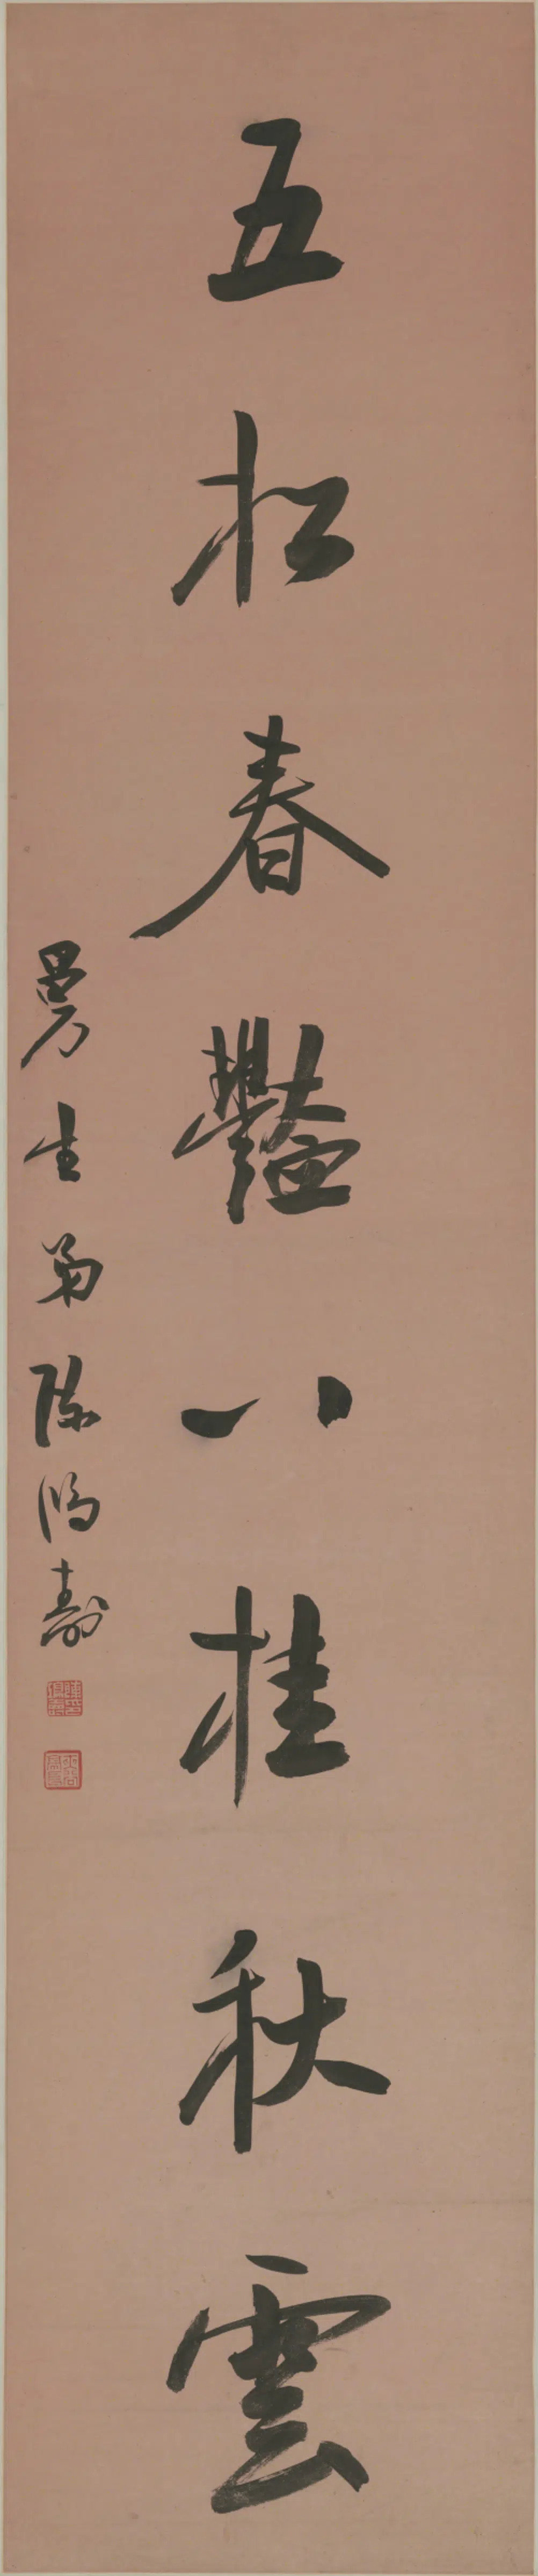 五松春豔八桂秋雲
曼生弟陳鴻壽